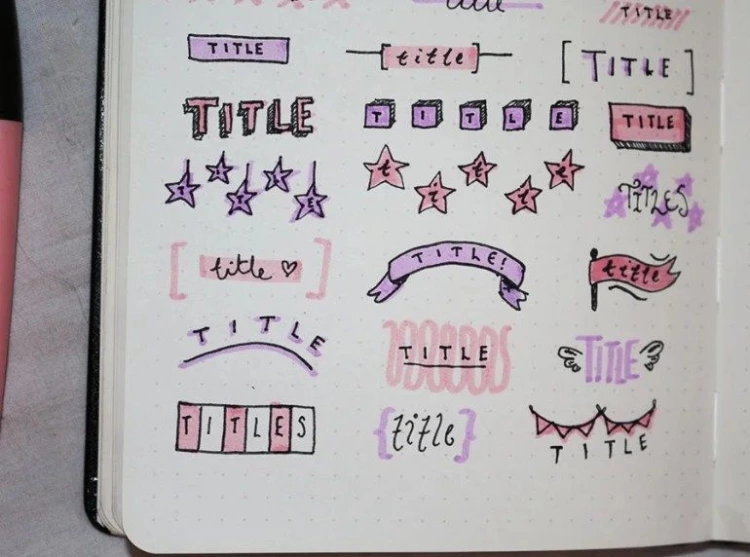 title
TITLE
TITLE
[title]
[TITLE]
TITLE
TITLE
TITLE
TITLE
title
TITLES
[title ♡]
TITLE!
title
TITLE
TITLE
TITLE
TITLES
{title}
TITLE